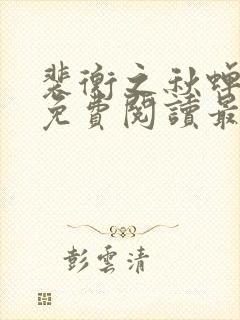 裴衡之秋蟬
免費閱讀最
彭雲清